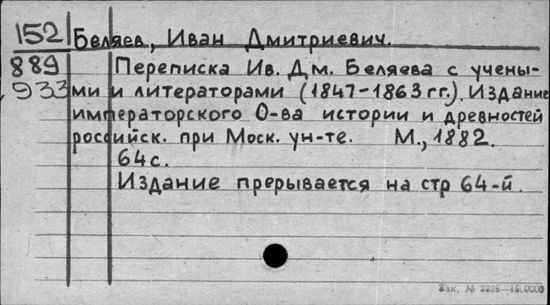 152 Беляев, Иван Дмитриевич.
889 Переписка Ив. Дм. Беляева с учены-
933 ми и литераторами (1847-1863 гг.). Издание
императорского О-ва истории и древностей
российск. при Моск. ун-те. М., 1882.
64 с.
Издание прерывается на стр 64-й.
Зак. №